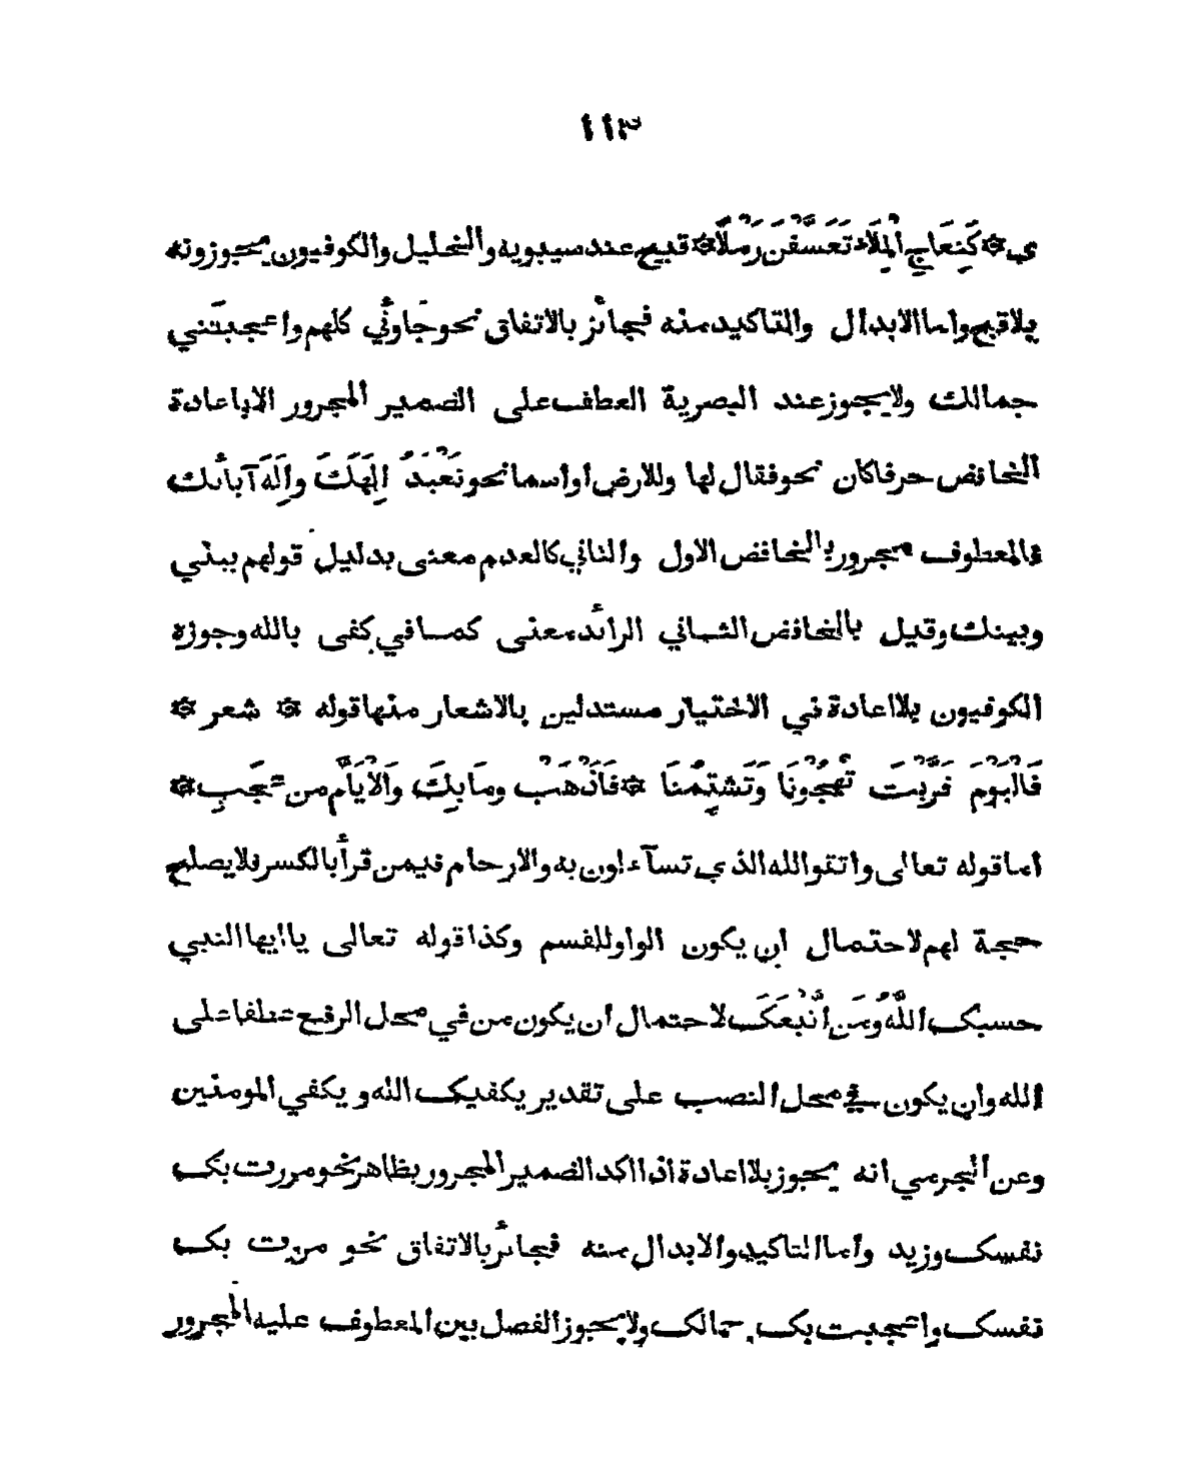 ١١٣
ي * كَنِعَاجِ الْمِلَاء تَعَسَّفْنَ رَمْلًا * قبيح عند سيبويه والخليل والكوفيون يجوزونه
بلا قبح واما الابدال والتاكيد منه فجائز بالاتفاق نحو جَاوئي كلهم واعجبتني
جمالك ولا يجوز عند البصرية العطف على الضمير المجرور الا باعادة
الخافض حرفا كان نحو فقال لها وللارض او أسما نحو نَعْبُدُ اِلٰهَكَ واِلَٰهَ آبائك
فالمعطوف مجرور بالخافض الاول والثاني كالعدم معنى بدليل قولهم بيني
وبينك وقيل بالخافض الثاني الزائد معنى كما في كفى بالله وجوزه
الكوفيون بلا اعادة في الاختيار مستدلين بالاشعار منها قوله * شعر *
فَالْيَوْمَ قَرَّبْتَ تَهْجُونَا وَتَشْتِمُنَا * فَاذْهَبْ ومَا بِكَ وَالْاَيَّام من عَجَبِ *
اما قوله تعالى واتقوا الله الذي تسآءلون به والارحام فيمن قرأ بالكسر فلا يصلح
حجة لهم لاحتمال ان يكون الواو للقسم وكذا قوله تعالى يا ايها النبي
حسبك اللّٰهُ ومَن اتَّبَعَكَ لاحتمال ان يكون من في محل الرفع عطفا على
الله وان يكون في محل النصب على تقدير يكفيك الله ويكفي المومنين
وعن الجرمي انه يجوز بلا اعادة اذا اكد الضمير المجرور بظاهر نحو مررت بك
نفسك وزيد وأما التاكيد والابدال منه فجائز بالاتفاق نحو مررت بك
نفسك واعجبت بك جمالك ولا يجوز الفصل بين المعطوف عليه المجرور